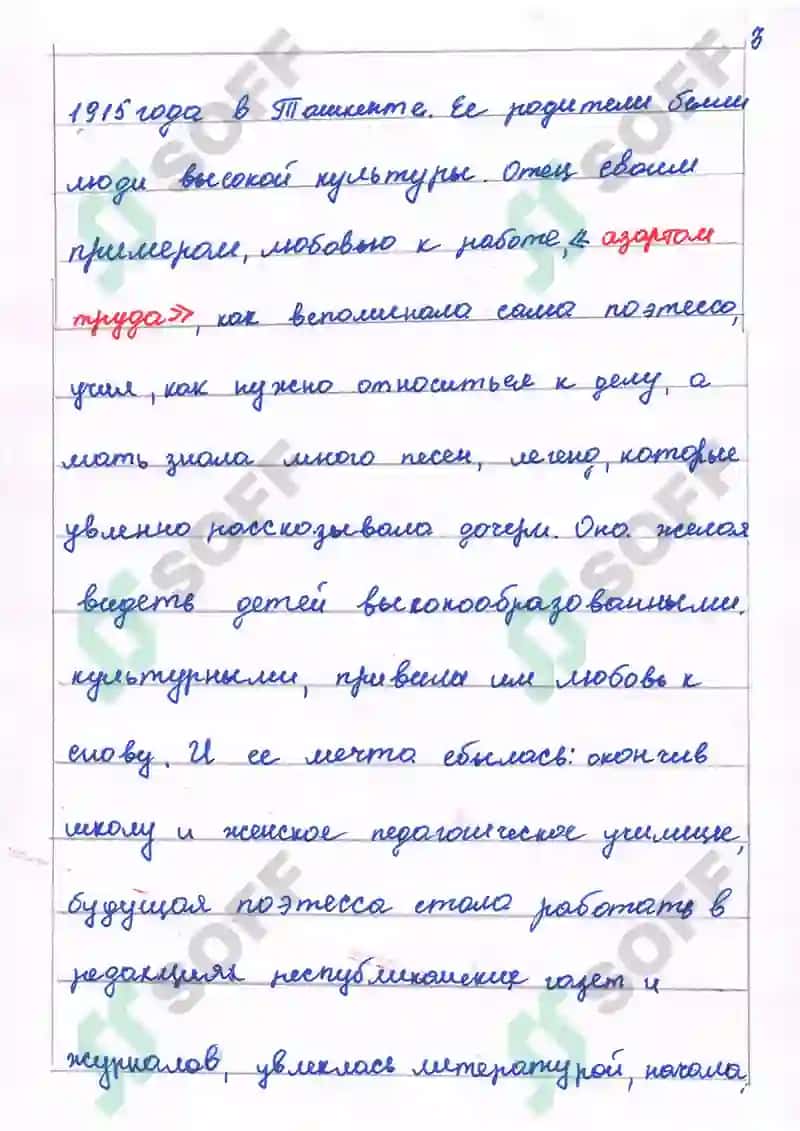 3
1915 года в Ташкенте. Ее родители были
люди высокой культуры. Отец своим
примером, любовью к работе, « азартом
труда», как вспоминала сама поэтесса,
учил, как нужно относиться к делу, а
мать знала много песен, легенд, которые
увленно рассказывала дочери. Она желая
видеть детей высконообразованными.
культурными, привила им любовь к
слову. И ее мечта сбылась: окончив
школу и женское педагогическое училище,
будущая поэтесса стала работать в
редакциях республиканских газет и
журналов, увлеклась литературой, начала,
SOFF
SOFF
SOFF
SOFF
SOFF
SOFF